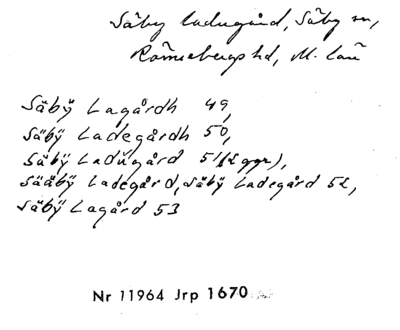 Säby ladugård, Säby sn,
Rönnebergs hd, M. län
Säbÿ Lagårdh 49,
Säbÿ Ladegårdh 50,
Säbÿ Ladŭgård 51 (2 ggr),
Sääbÿ Ladegård, Säbÿ Ladegård 52,
Säbÿ Lagård 53
Nr 11964 Jrp 1670